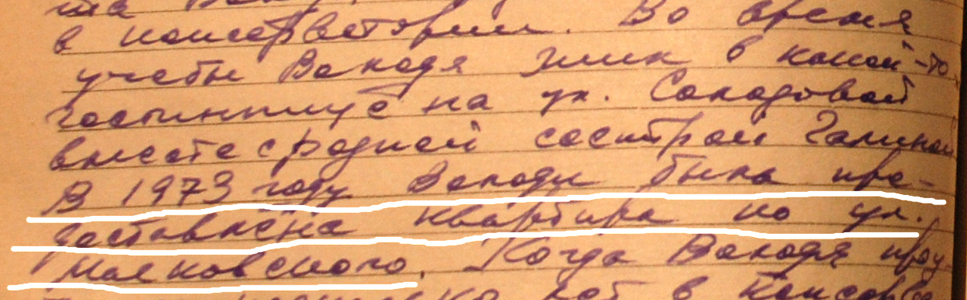 в консерватории. Во время
учебы Володя жил в какой-то
гостинице на ул. Солодовой
вместе с родной сестрой Галиной
В 1973 году Володи была пре-
доставлена квартира по ул.
Маяковского. Когда Володя
в